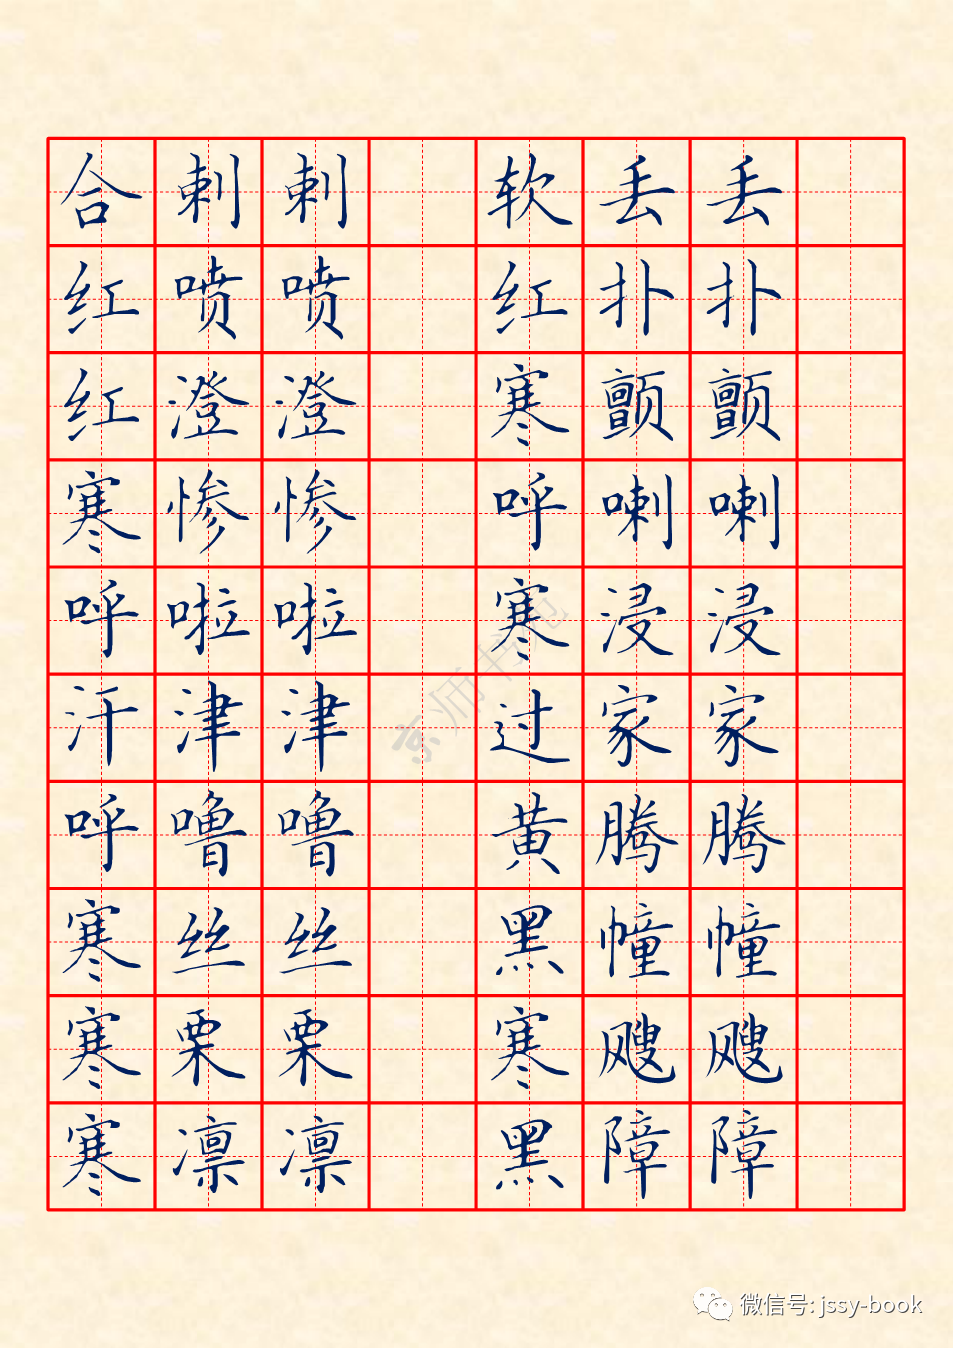 合剌剌 软丢丢
红喷喷 红扑扑
红澄澄 寒颤颤
寒惨惨 呼喇喇
呼啦啦 寒浸浸
汗津津 过家家
呼噜噜 黄腾腾
寒丝丝 黑幢幢
寒栗栗 寒飕飕
寒凛凛 黑障障
京师书苑
微信号: jssy-book